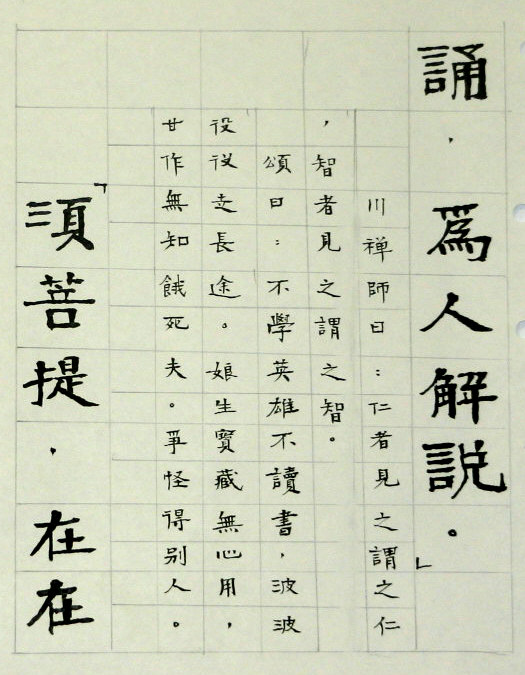 誦，為人解說。」
川禅師曰：仁者見之謂之仁
，智者見之謂之智。
頌曰：不學英雄不讀書，波波
役役走長途。娘生寳藏無心用，
甘作無知餓死夫。爭怪得別人。
「須菩提，在在